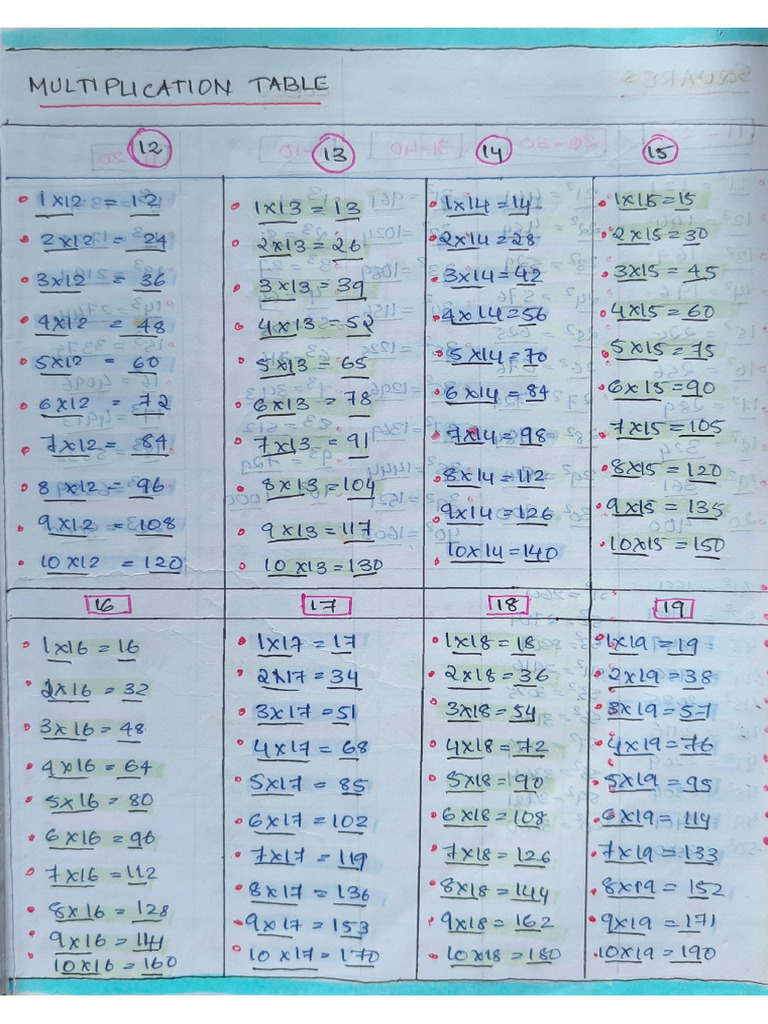 MULTIPLICATION TABLE
12
1x12 = 12
2x12 = 24
3x12 = 36
4x12 = 48
5x12 = 60
6x12 = 72
7x12 = 84
8x12 = 96
9x12 = 108
10x12 = 120
13
1x13 = 13
2x13 = 26
3x13 = 39
4x13 = 52
5x13 = 65
6x13 = 78
7x13 = 91
8x13 = 104
9x13 = 117
10x13 = 130
14
1x14 = 14
2x14 = 28
3x14 = 42
4x14 = 56
5x14 = 70
6x14 = 84
7x14 = 98
8x14 = 112
9x14 = 126
10x14 = 140
15
1x15 = 15
2x15 = 30
3x15 = 45
4x15 = 60
5x15 = 75
6x15 = 90
7x15 = 105
8x15 = 120
9x15 = 135
10x15 = 150
16
1x16 = 16
2x16 = 32
3x16 = 48
4x16 = 64
5x16 = 80
6x16 = 96
7x16 = 112
8x16 = 128
9x16 = 144
10x16 = 160
17
1x17 = 17
2x17 = 34
3x17 = 51
4x17 = 68
5x17 = 85
6x17 = 102
7x17 = 119
8x17 = 136
9x17 = 153
10x17 = 170
18
1x18 = 18
2x18 = 36
3x18 = 54
4x18 = 72
5x18 = 90
6x18 = 108
7x18 = 126
8x18 = 144
9x18 = 162
10x18 = 180
19
1x19 = 19
2x19 = 38
3x19 = 57
4x19 = 76
5x19 = 95
6x19 = 114
7x19 = 133
8x19 = 152
9x19 = 171
10x19 = 190